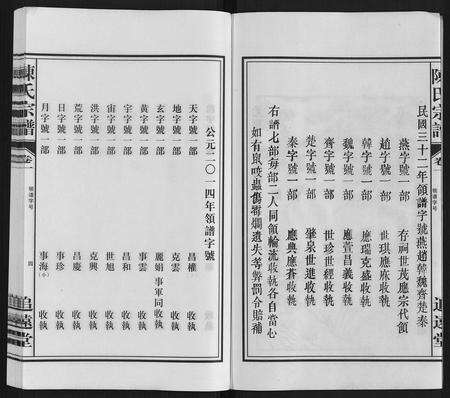 陳氏宗譜
卷一
領譜字號
追遠堂
民國三十二年領譜字號燕趙韓魏齊楚秦
燕字號一部 存祠世茂應宗代領
趙字號一部 世琪應庥收執
韓字號一部 應瑞克盛收執
魏字號一部 應萱昌義收執
齊字號一部 世珍世經收執
楚字號一部 肇泉世進收執
秦字號一部 應興應蒼收執
右譜七部每部二人同領輪流收執各自當心
如有鼠咬蟲傷霉爛遺失等弊罰令賠補
公元二〇一四年領譜字號
天字號一部 昌權 收執
地字號一部 克雲 收執
玄字號一部 麗娟 事軍同收執
黃字號一部 事雲 收執
宇字號一部 昌和 收執
宙字號一部 世旭 收執
洪字號一部 克興 收執
荒字號一部 昌慶 收執
日字號一部 事珍 收執
月字號一部 事海(小) 收執
陳氏宗譜
卷一
領譜字号
四
追遠堂